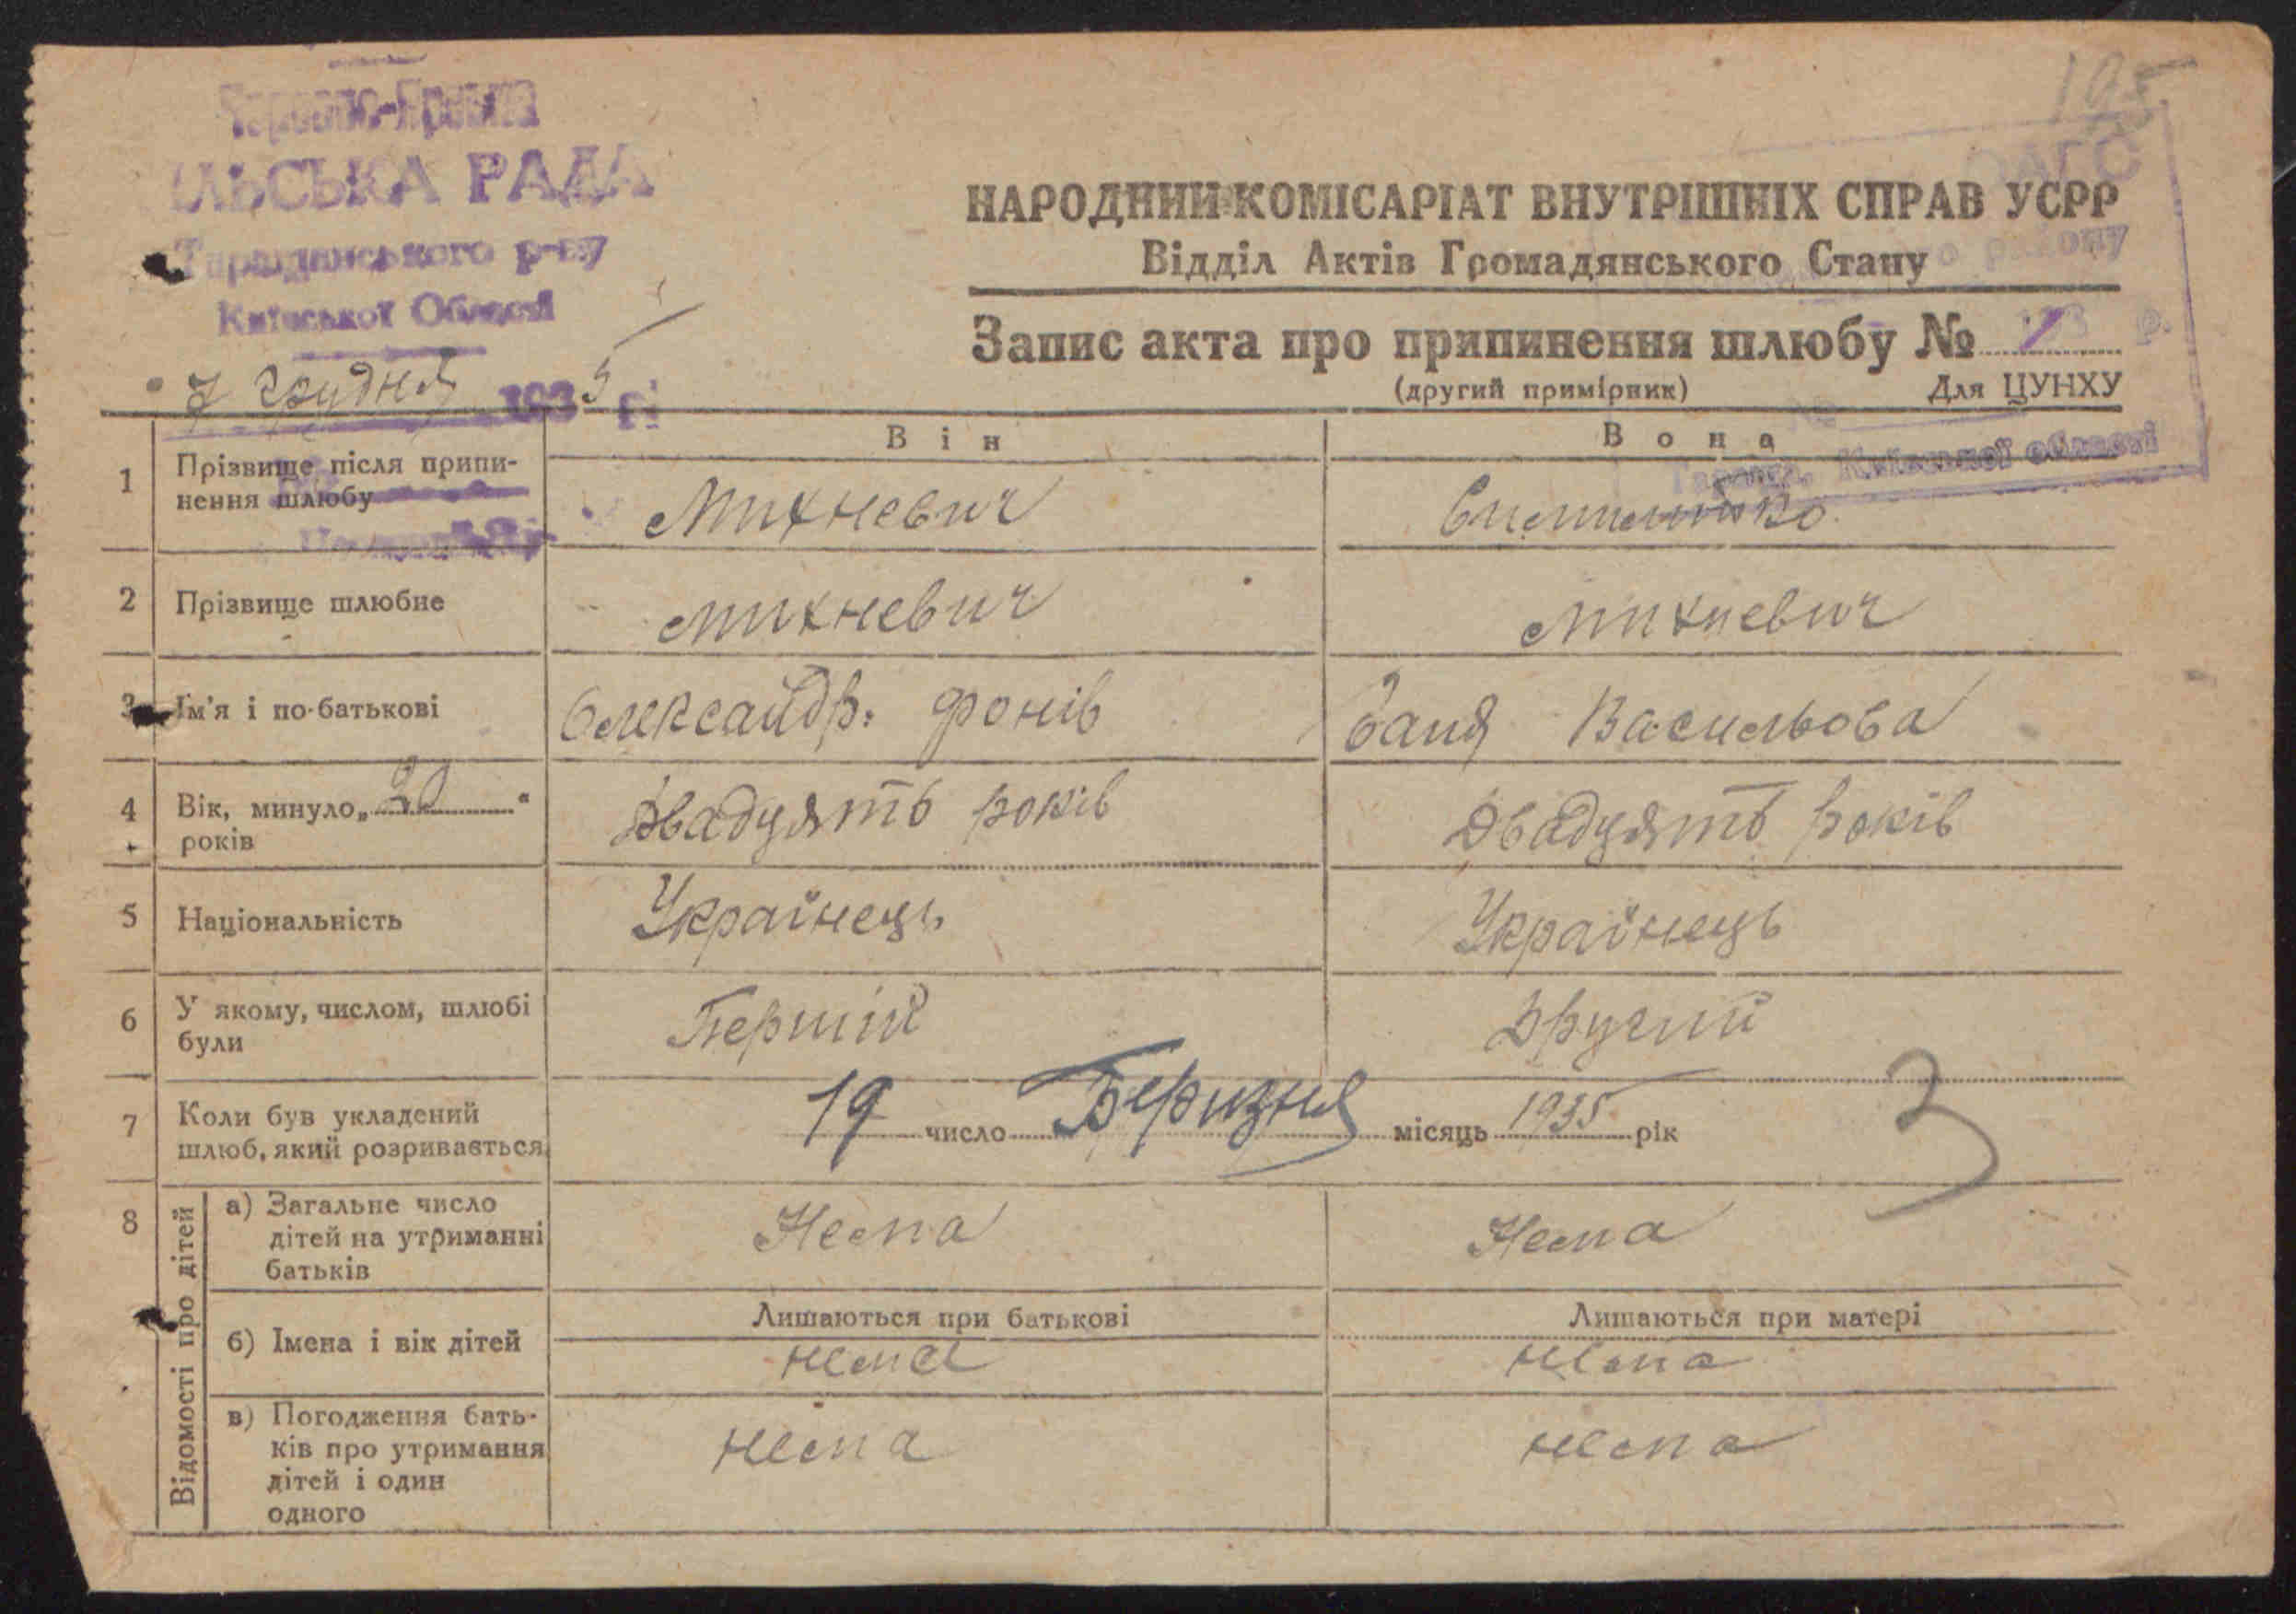 195
РАДА
Таращанського р-ну
Київської Області
7 грудня 1935 р.
ЗАГС
району
НАРОДНИЙ КОМІСАРІАТ ВНУТРІШНІХ СПРАВ УСРР
Відділ Актів Громадянського Стану
Запис акта про припинення шлюбу №
(другий примірник) Для ЦУНХУ
Київської області
Він Вона
1 Прізвище після припинення шлюбу
Михневич
2 Прізвище шлюбне Михневич Михневич
3 Ім'я і по-батькові Олександр. Фонів Васильова
4 Вік, минуло „20“ років Двадцять років Двадцять років
5 Національність Українець Українець
6 У якому, числом, шлюбі були Першій Другий
7 Коли був укладений шлюб, який розривається 19 число Беризня місяць 1935 рік
3
8 Відомості про дітей
а) Загальне число дітей на утриманні батьків Нема Нема
Лишаються при батькові Лишаються при матері
б) Імена і вік дітей нема нема
в) Погодження батьків про утримання дітей і один одного нема нема